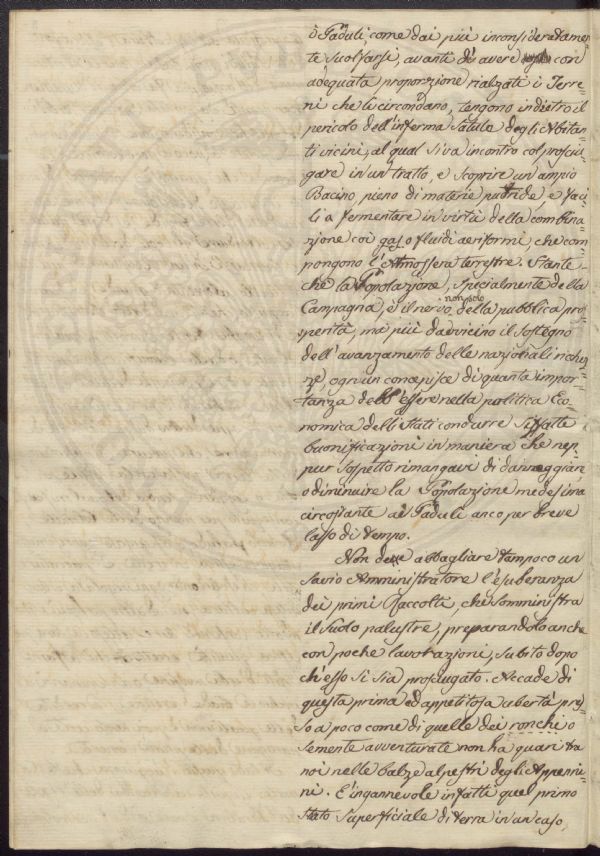 i Paduli, come dai più inconsideratamen=
te suol farsi, avanti di avere con
adequata proporzione rialzati i Terre=
ni che li circondano, tengono indietro il
pericolo dell'inferma salute degli Abitan=
ti vicini, al qual si va incontro col prosciu=
gare in un tratto, e scoprire un'ampio
Bacino pieno di materie putride, e faci=
li a fermentare in virtù della combina=
zione coi gas, o fluidi aeriformi, che com=
pongono l'Atmosfera terrestre. Stante=
che la Popolazione, specialmente della
Campagna, è il nervo non solo della pubblica pros=
perità, ma più da vicino il sostegno
dell'avanzamento delle nazionali ricchez=
ze, ogn'un concepisce di quanta impor=
tanza dell'essere nella politica Eco=
nomica delli Stati condurre siffatte
buonificazioni in maniera che nep=
pur sospetto rimangavi di danneggiare,
o diminuire la Popolazione medesima
circostante ai Paduli anco per breve
lasso di tempo.
Non deve abbagliare tampoco un
savio Amministratore l'esuberanza
dei primi Raccolti, che somministra
il suolo palustre, preparandolo anche
con poche lavorazioni, subito dopo
ch'esso si sia prosciugato. Accade di
questa prima ed appetitosa ubertà pres=
so a poco come di quelle dei ronchi o
semente avventurate non ha quari tra
noi nelle balze alpestri degli Appenni=
ni. È ingannevole infatti quel primo
stato superficiale di terra in un caso,